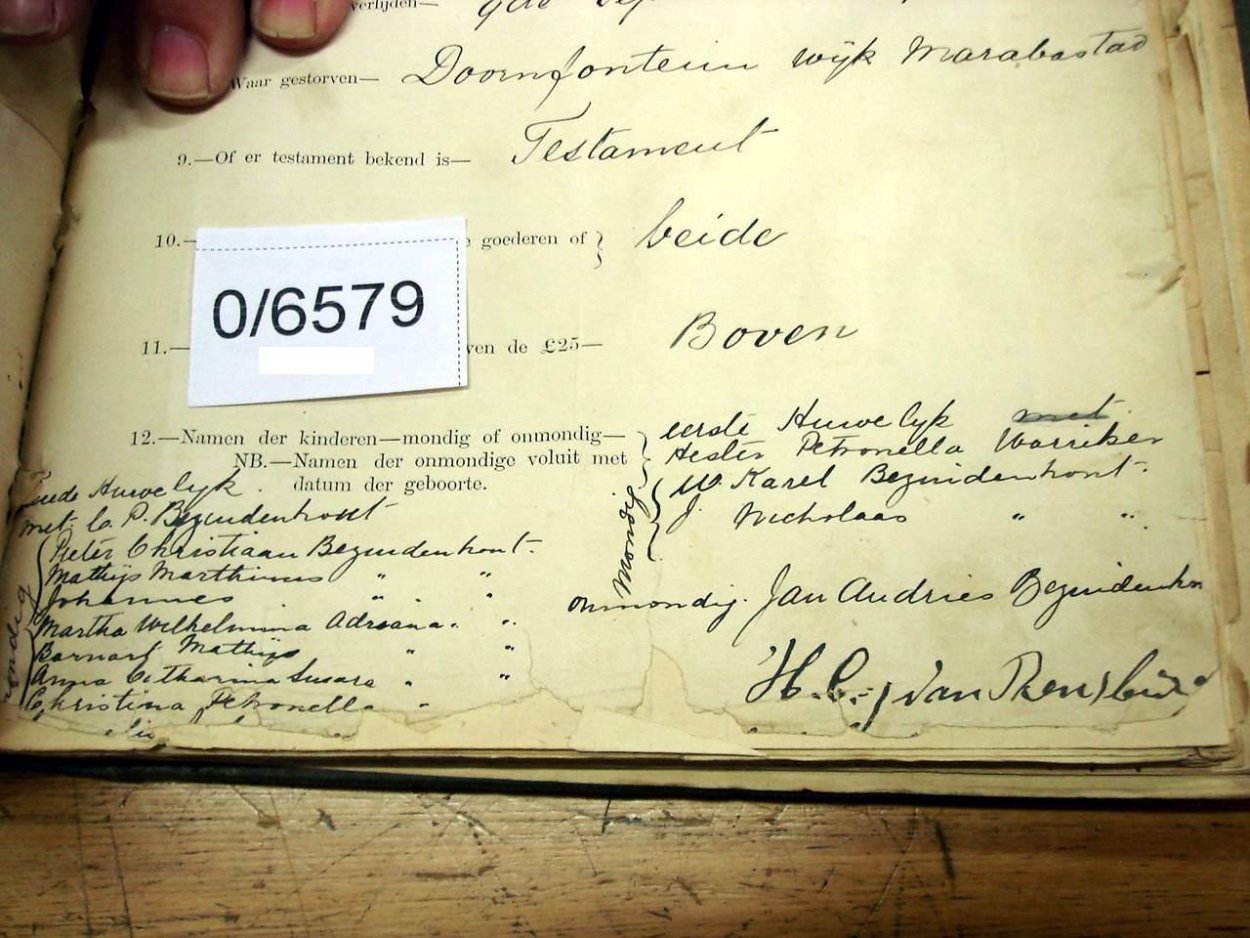 verlijden— 9de
Waar gestorven— Doornfontein wijk Marabastad
9.—Of er testament bekend is— Testament
10.— goederen of } beide
0/6579
11.— ven de £25— Boven
12.—Namen der kinderen—mondig of onmondig—
NB.—Namen der onmondige voluit met
datum der geboorte.
eerste Huwelyk met
Hester Petronella Warriker
mondig
W. Karel Bezuidenhout.
J. Nicholaas " "
onmondig. Jan Andries Bezuidenho
Huwelyk.
met C. P. Bezuidenhout
Pieter Christiaan Bezuidenhout.
Mathys Marthinus " "
Johannes " "
Martha Wilhelmina Adriana " "
Barnard Mathys " "
Anna Catharina Susara " "
Christina Petronella "
H. C. J van Rensburg